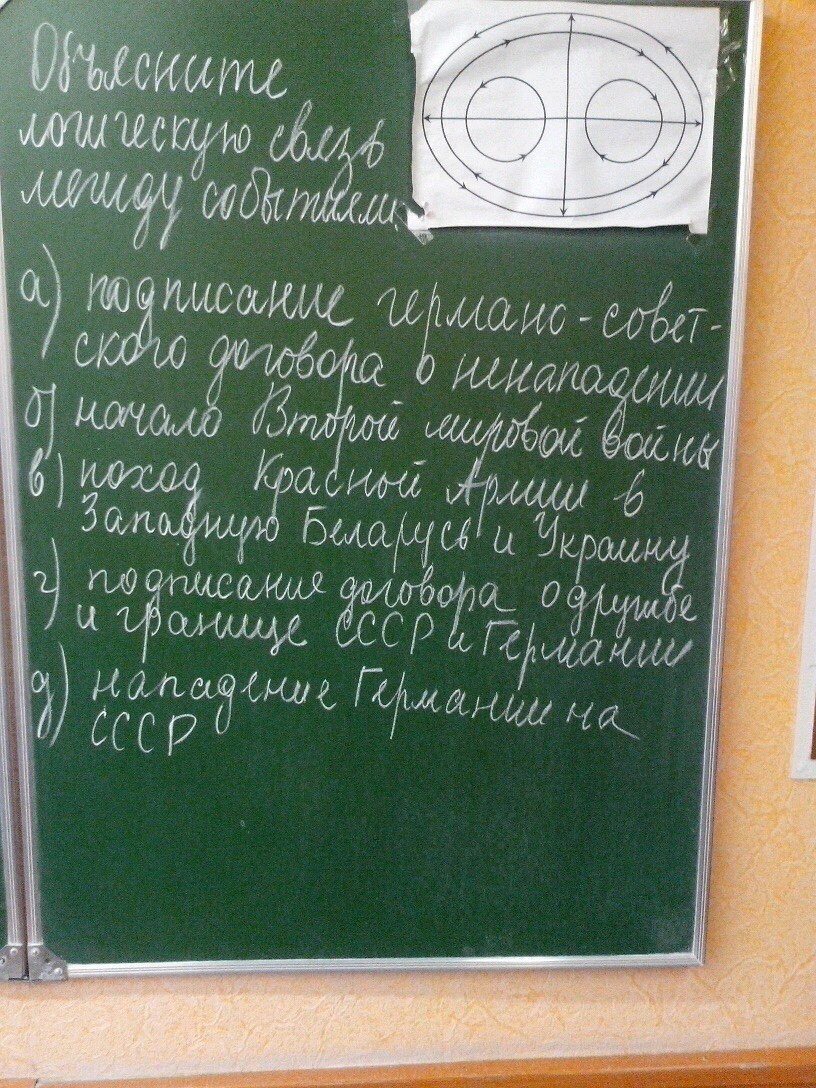 Объясните
логическую связь
между событиями
а) подписание германо-совет-
ского договора о ненападении
б) начало Второй мировой войны
в) поход Красной Армии в
Западную Беларусь и Украину
г) подписание договора о дружбе
и границе СССР и Германии
д) нападение Германии на
СССР